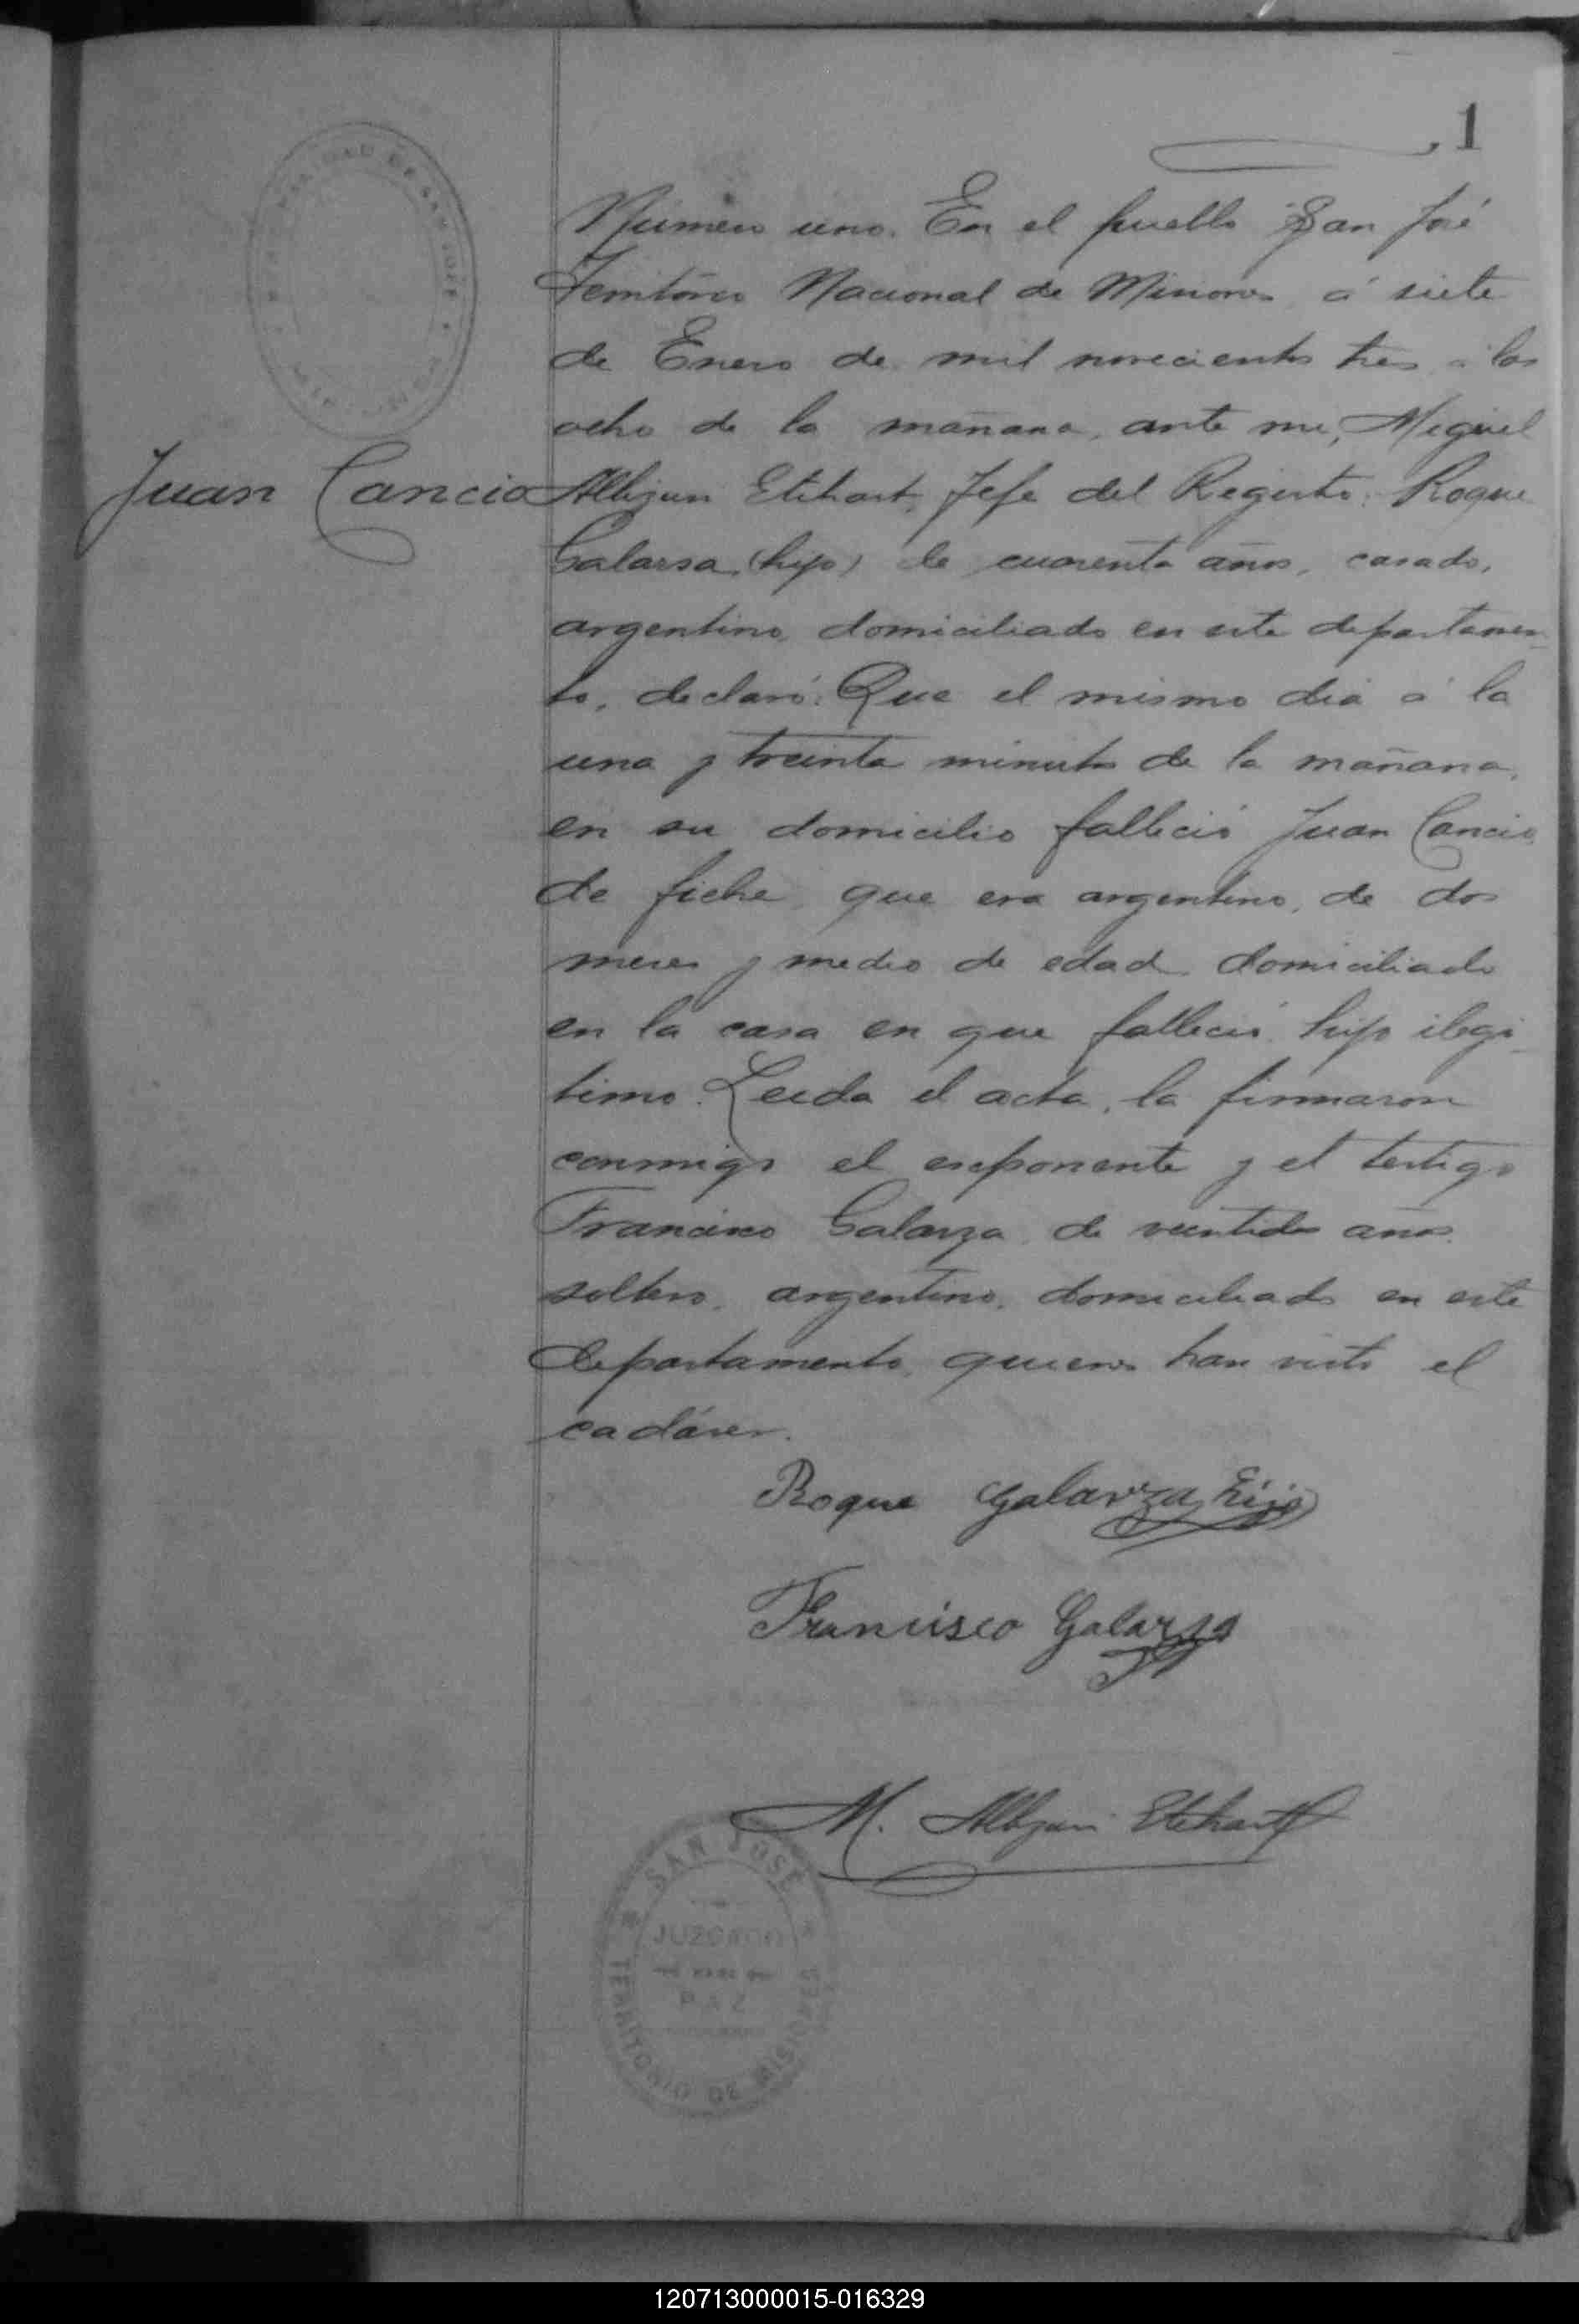 1
Número uno. En el pueblo San José
Territorio Nacional de Misiones á siete
de Enero de mil novecientos tres á las
ocho de la mañana, ante mi, Miguel
Juan Cancio
Etchart, Jefe del Registro: Roque
Galarsa (hijo) de cuarenta años, casado,
argentino, domiciliado en este departamen-
to, declaró: Que el mismo dia á la
una y treinta minutos de la mañana,
en su domicilio falleció Juan Cancio,
de fiebre, que era argentino, de dos
meses y medio de edad domiciliado
en la casa en que falleció, hijo ilegi-
timo. Leida el acta, la firmaron
conmigo el exponente y el testigo
Francisco Galarza, de veintidos años,
soltero, argentino, domiciliado en este
departamento, quienes han visto el
cadáver.
Roque Galarza hijo
Francisco Galarza
M. Etchart
SAN JOSÉ
JUZGADO
DE
PAZ
TERRITORIO DE MISIONES
120713000015-016329